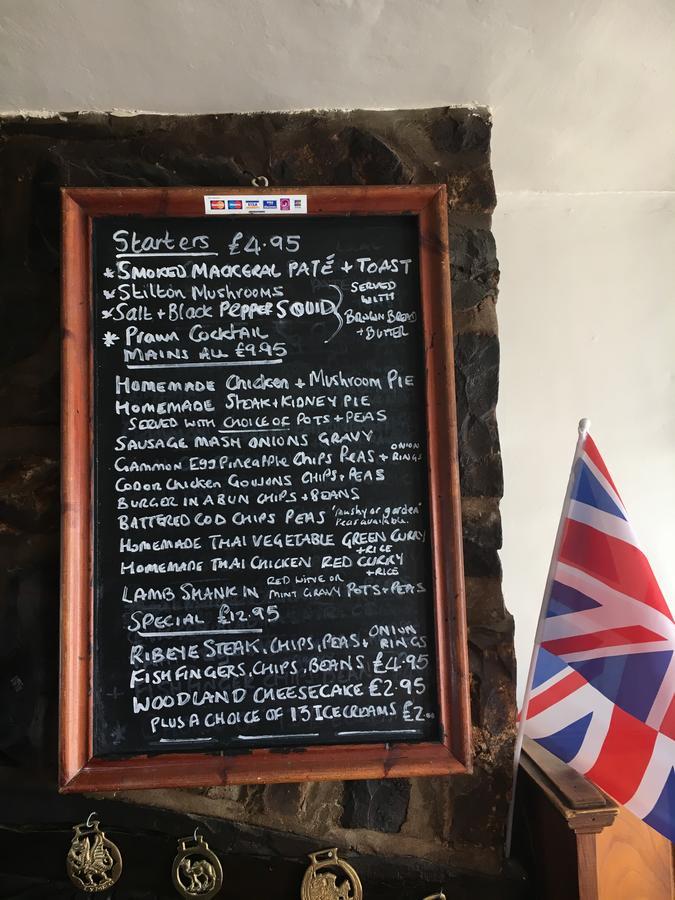 Starters £4.95
* SMOKED MACKGRAL PATÉ + TOAST
* Stilton Mushrooms
* Salt + Black PEPPER SQUID
* Prawn Cocktail
SERVED
WITH
BROWN BREAD
+ BUTTER
MAINS ALL £9.95
HOMEMADE Chicken + Mushroom PIE
HOMEMADE STEAK + KIDNEY PIE
SERVED WITH CHOICE OF POTS + PEAS
SAUSAGE MASH ONIONS GRAVY
Gammon Egg Pineapple Chips Peas + ONION RINGS
Chicken Goujons CHIPS + PEAS
BURGER IN A BUN CHIPS + BEANS
BATTERED COD CHIPS PEAS "mushy or garden"
Peas available.
HOMEMADE THAI VEGETABLE GREEN CURRY
+ RICE
HOMEMADE THAI CHICKEN RED CURRY
+ RICE
LAMB SHANK IN RED WINE OR MINT GRAVY POTS + PEAS
SPECIAL £12.95
RIBEYE STEAK, CHIPS, PEAS + ONION RINGS
FISH FINGERS, CHIPS, BEANS £4.95
WOODLAND CHEESECAKE £2.95
PLUS A CHOICE OF 13 ICECREAMS £2.00